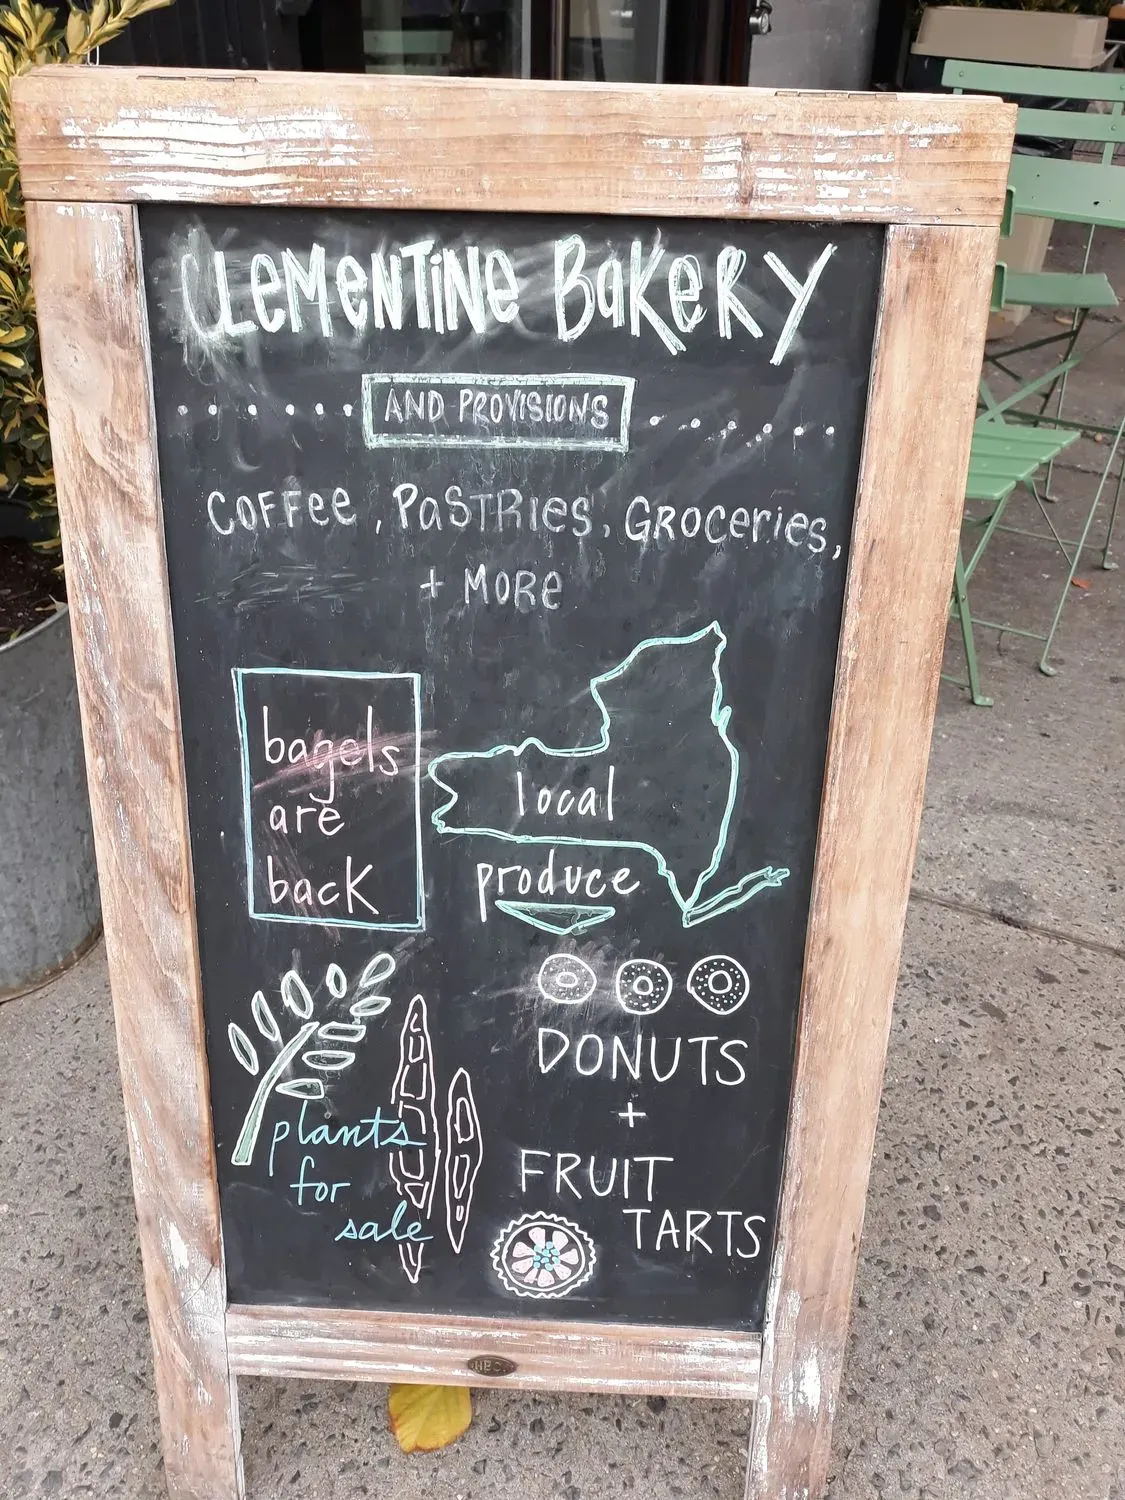 CLEMENTINE BAKERY
AND PROVISIONS
COFFEE, PASTRIES, GROCERIES,
+ MORE
bagels
are
back
local
produce
plants
for
sale
DONUTS
+
FRUIT
TARTS